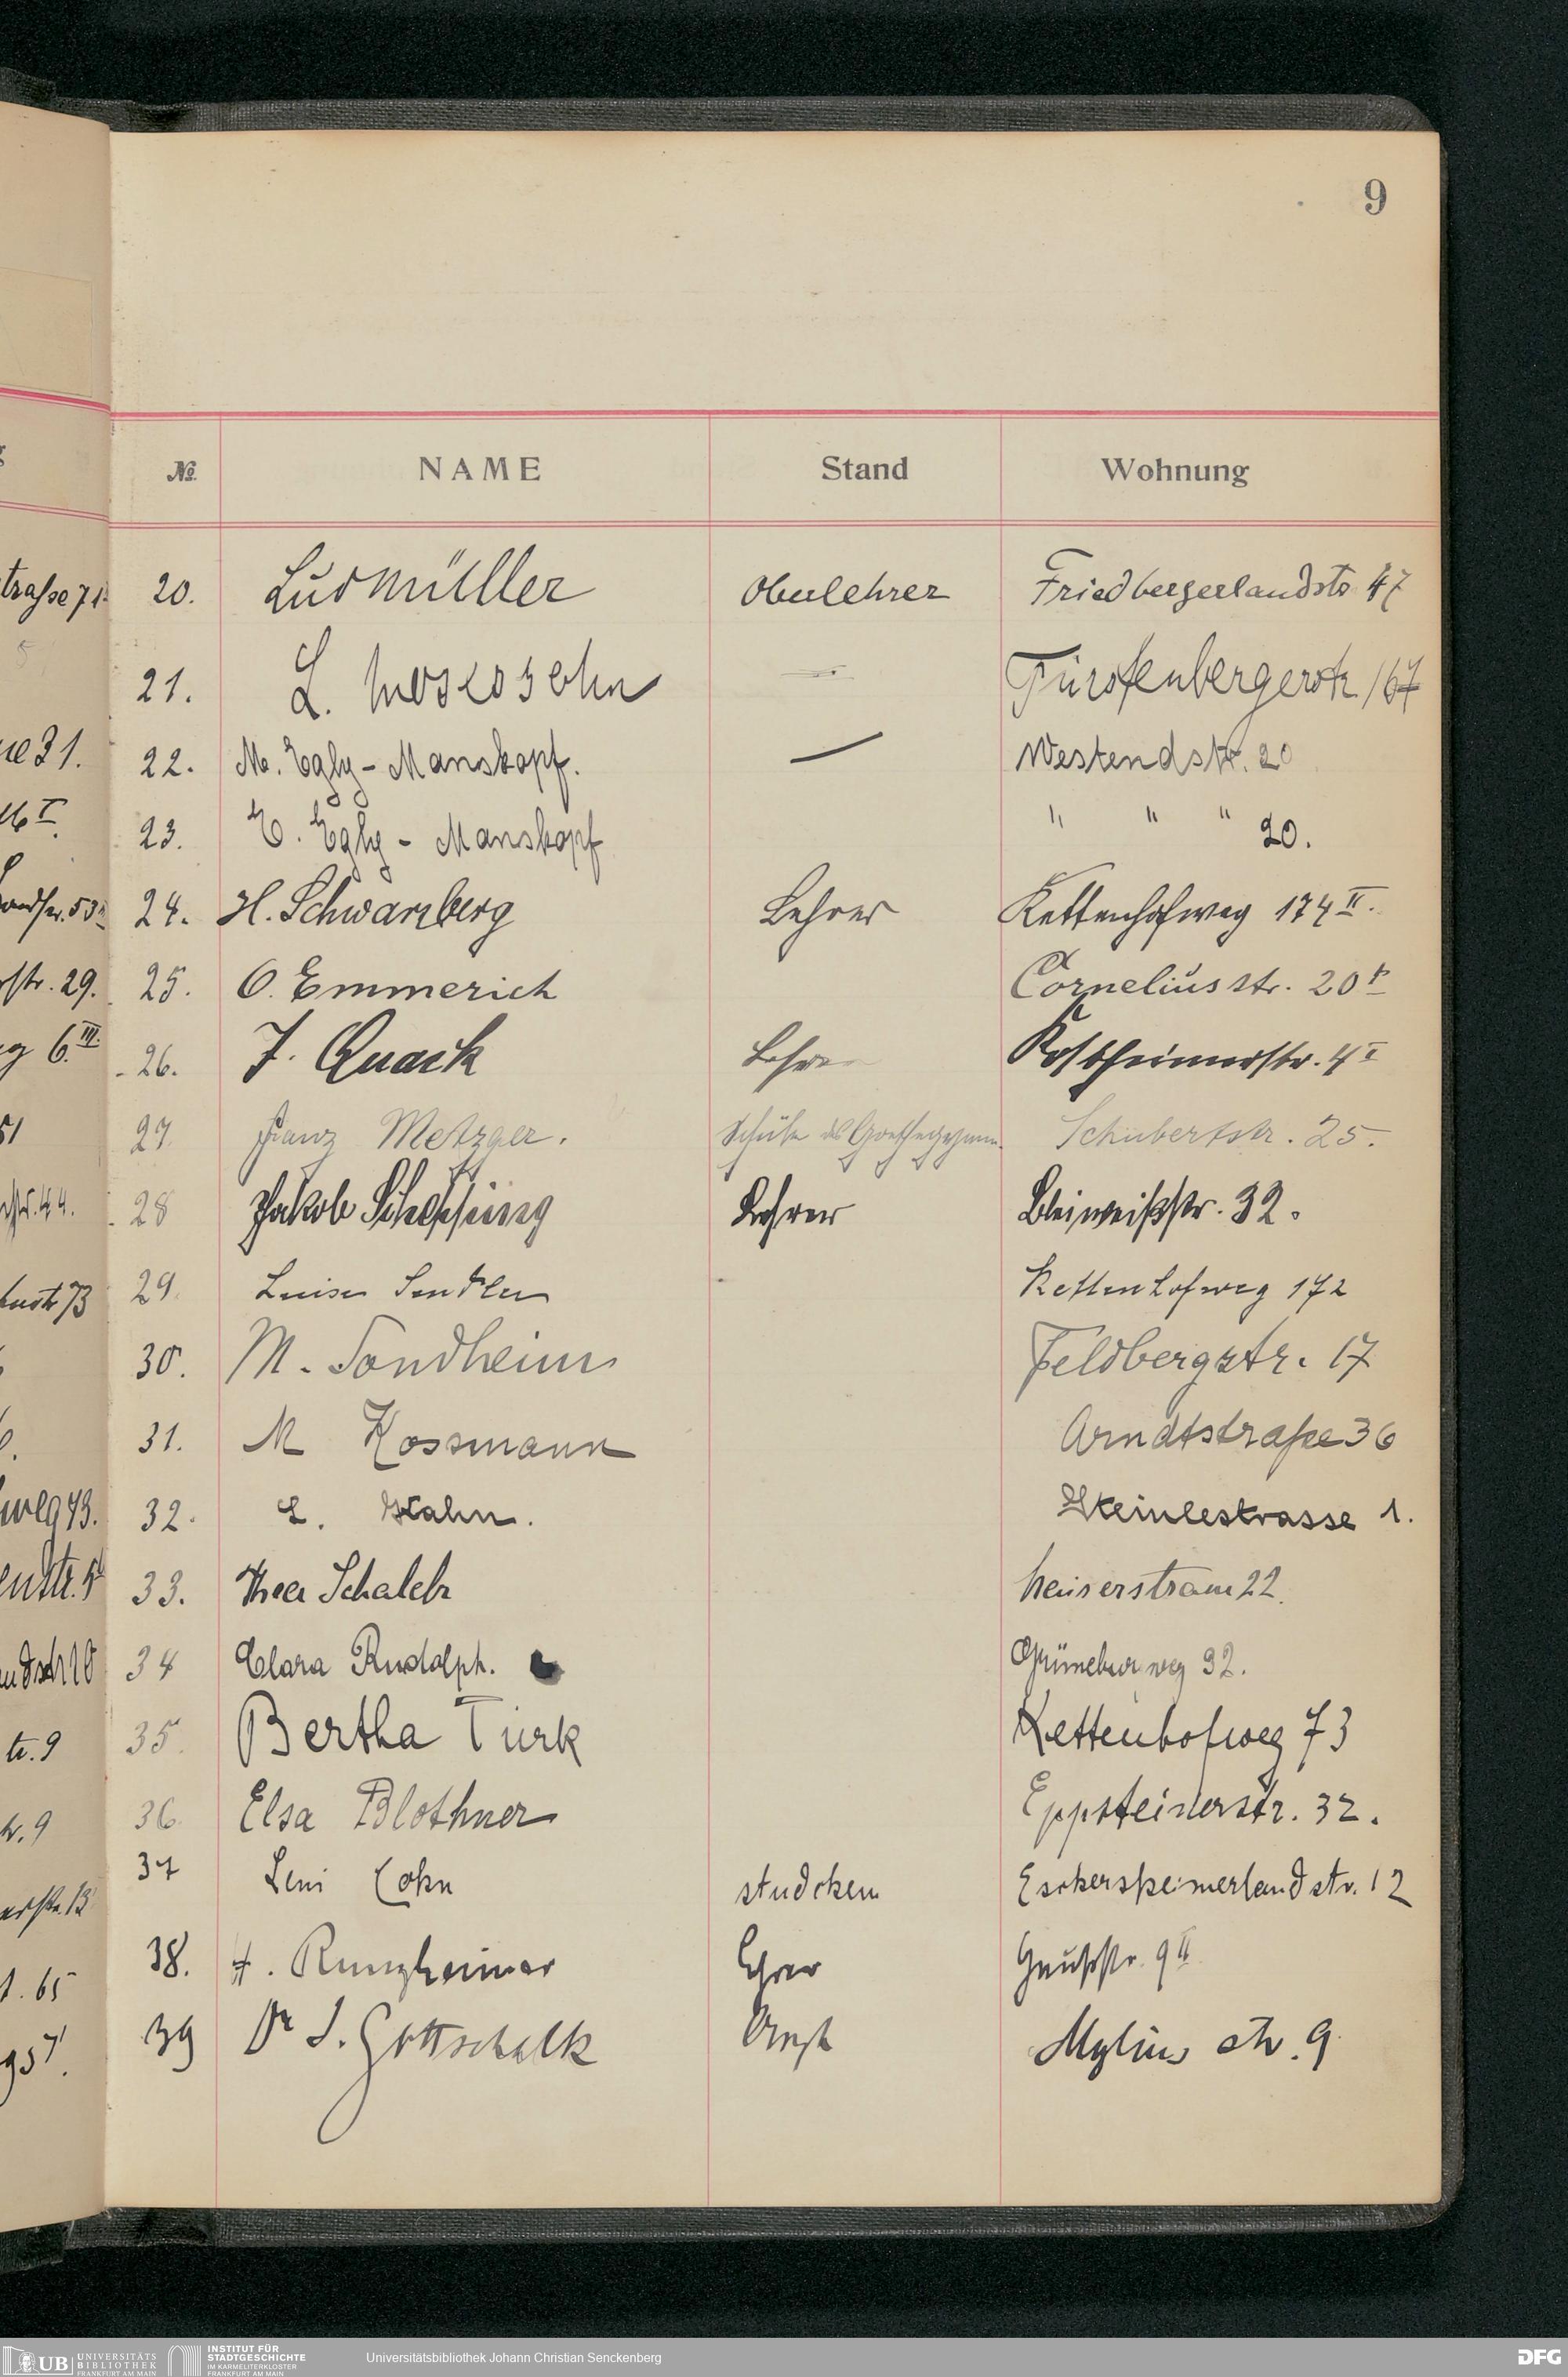 9
№ NAME Stand Wohnung
20. Ludmüller Oberlehrer Friedbergerlandstr 47
21. L. Mosessohn Fürstenbergerstr. 167
22. M. Egly-Manskopf. — Westendstr. 20
23. E. Egly-Manskopf " " " 20.
24. H. Schwarzberg Lehrer Kettenhofweg 174 II.
25. O. Emmerich Corneliusstr. 20
26. J. Quack Lehrer Kostheimerstr. 4 I
27. Franz Metzger. Schüler des Goethegymn. Schubertstr. 25.
28 Jakob Lehrer Bleiweißstr. 32.
29. Luise Kettenhofweg 172
30. M. Sondheim Feldbergstr. 17
31. M Kossmann Arndtstraße 36
32. L. Kahn. Steinlestrasse 1.
33. Schaleh 22.
34 Clara Rudolph. Grüneburgweg 92.
35. Bertha Türk Kettenhofweg 73
36. Elsa Blothner Eppsteinerstr. 32.
37 Leni Cohn Eschersheimerlandstr. 12
38. H. Runzheimer Lehrer Gaußstr. 9 II
39 Dr J. Gottschalk Arzt Mylius str. 9
UB UNIVERSITÄTS
BIBLIOTHEK
FRANKFURT AM MAIN
INSTITUT FÜR
STADTGESCHICHTE
IM KARMELITERKLOSTER
FRANKFURT AM MAIN
Universitätsbibliothek Johann Christian Senckenberg
DFG